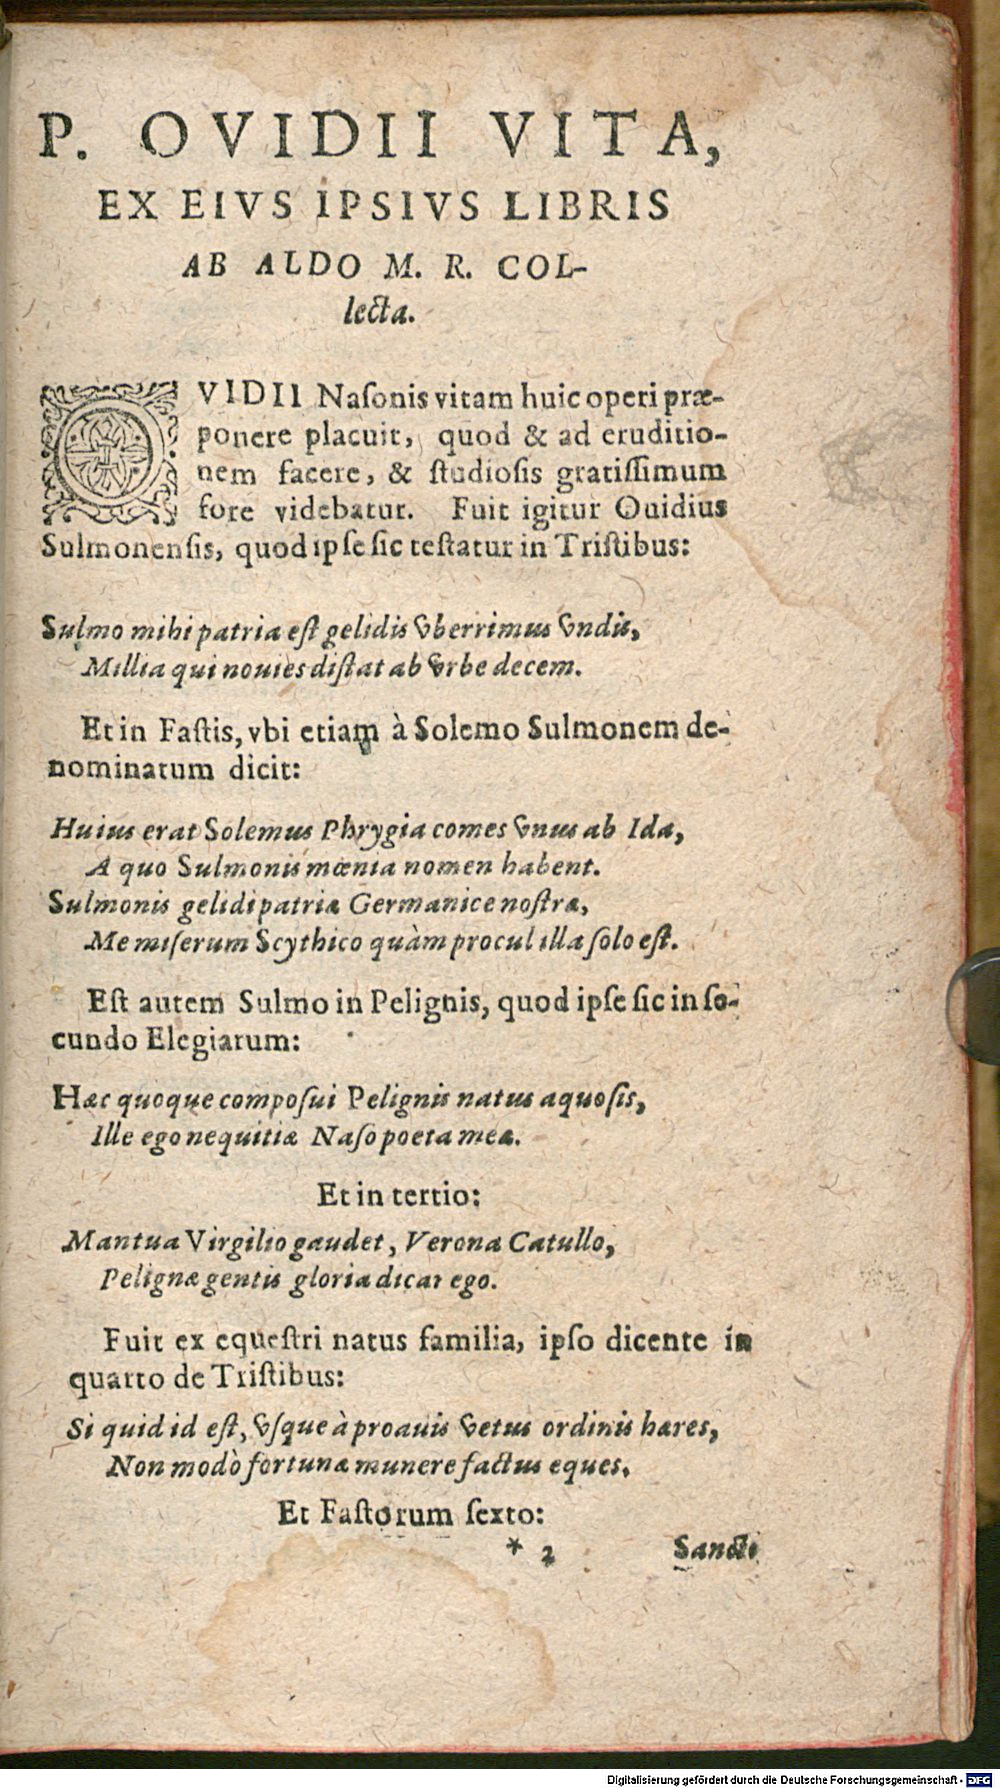 P. OVIDII VITA,
EX EIVS IPSIVS LIBRIS
AB ALDO M. R. COL-
lecta.
OVIDII Naſonis vitam huic operi præ-
ponere placuit, quod & ad eruditio-
nem facere, & ſtudioſis gratiſſimum
fore videbatur. Fuit igitur Ouidius
Sulmonenſis, quod ipſe ſic teſtatur in Triſtibus:
Sulmo mihi patria eſt gelidis vberrimus vndis,
Millia qui nouies diſtat ab vrbe decem.
Et in Faſtis, vbi etiam à Solemo Sulmonem de-
nominatum dicit:
Huius erat Solemus Phrygia comes vnus ab Ida,
A quo Sulmonis mœnia nomen habent.
Sulmonis gelidi patriæ Germanice noſtræ,
Me miſerum Scythico quàm procul illa ſolo eſt.
Eſt autem Sulmo in Pelignis, quod ipſe ſic in ſe-
cundo Elegiarum:
Hæc quoque compoſui Pelignis natus aquoſis,
Ille ego nequitiæ Naſo poeta meæ.
Et in tertio:
Mantua Virgilio gaudet, Verona Catullo,
Pelignæ gentis gloria dicar ego.
Fuit ex equeſtri natus familia, ipſo dicente in
quarto de Triſtibus:
Si quid id eſt, vſque à proauis vetus ordinis hæres,
Non modò fortunæ munere factus eques.
Et Faſtorum ſexto:
* 2 Sancte
Digitalisierung gefördert durch die Deutsche Forschungsgemeinschaft - DFG